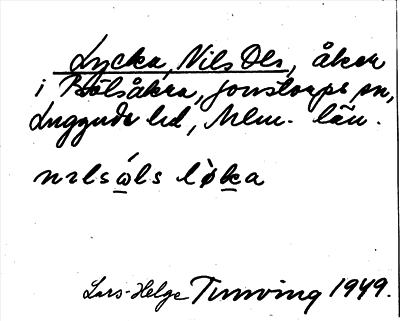 Lycka, Nils Ols, åker
i Bölsåkra, Jonstorps sn,
Luggude hd, Mlm. län.
nɪls ώ̲ls lø̀k̲a
Lars-Helge Tunving 1949.